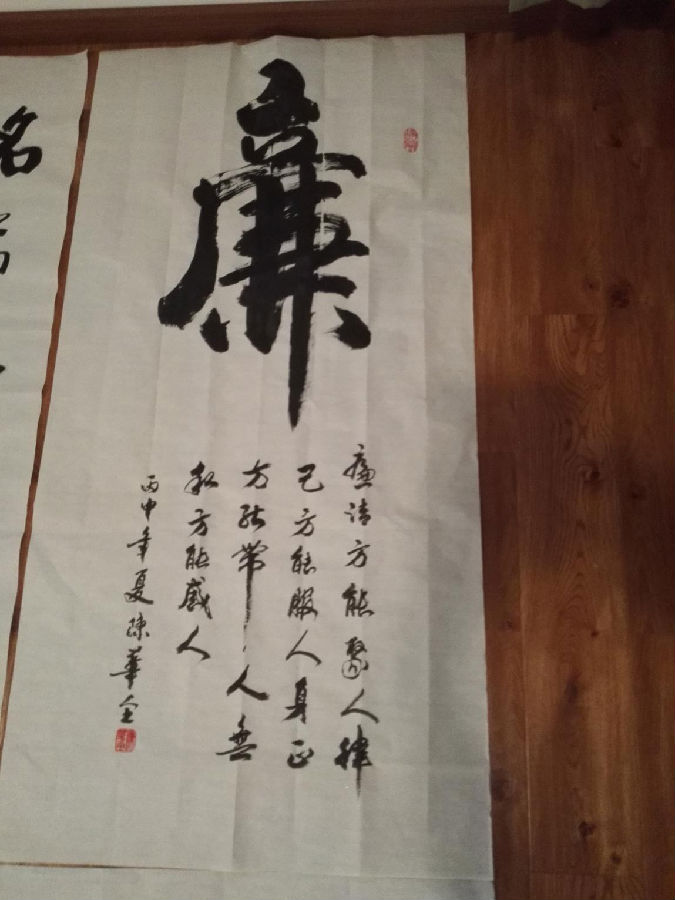 廉
廉洁方能聚人律
己方能服人身正
方能帶人無
私方能感人
丙申年夏陳華全